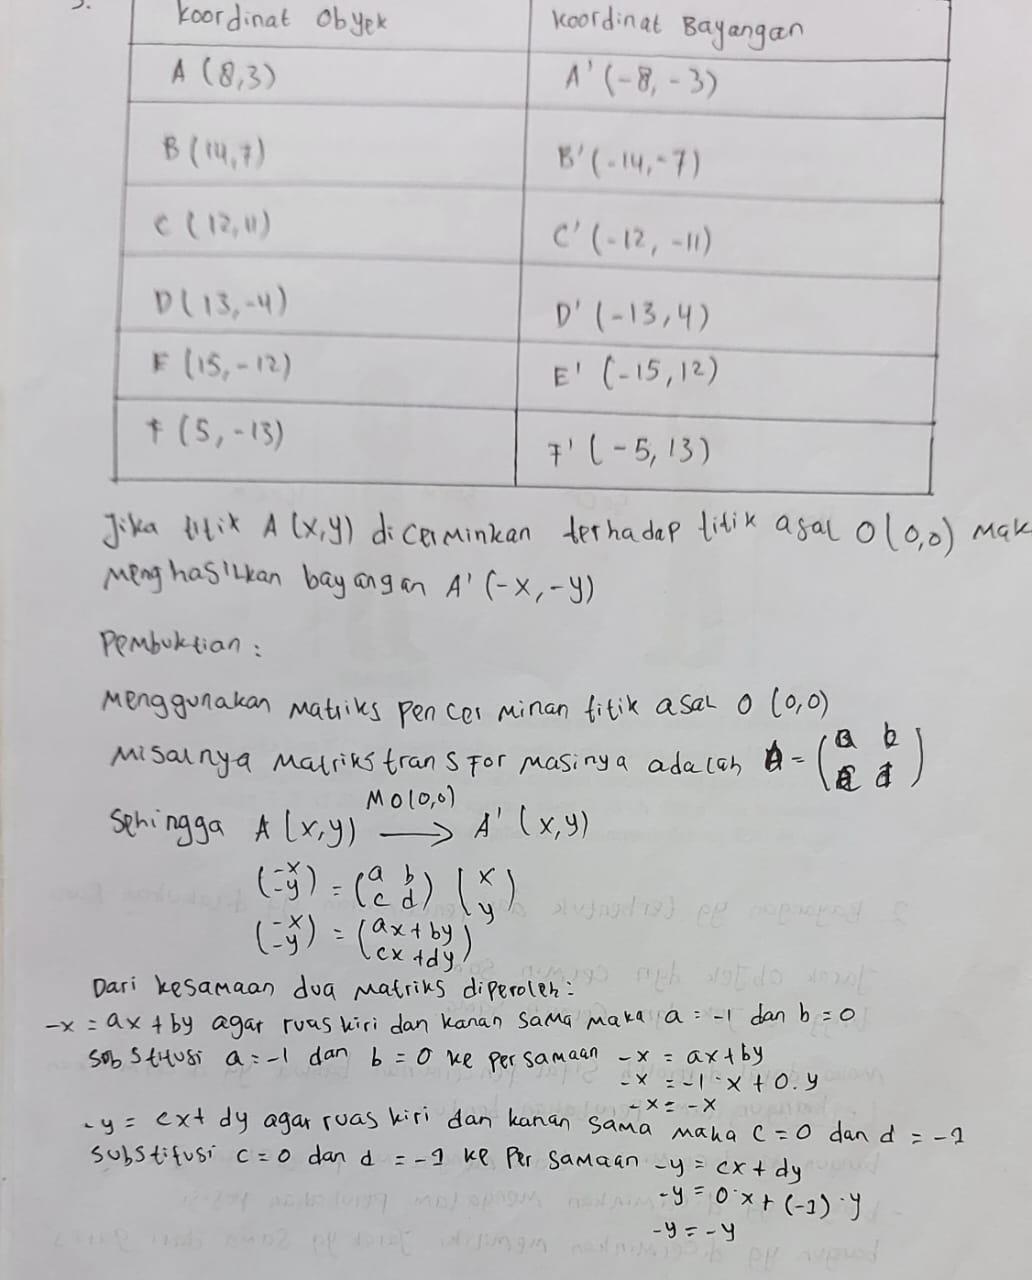 3.
Koordinat Obyek Koordinat Bayangan
A (8,3) A' (-8, -3)
B (14,7) B' (-14, -7)
C (12,11) C' (-12, -11)
D (13,-4) D' (-13,4)
E (15,-12) E' (-15,12)
F (5,-13) F' (-5,13)
Jika titik A (x,y) dicerminkan terhadap titik asal O (0,0) mak
menghasilkan bayangan A' (-x,-y)
Pembuktian :
Menggunakan matriks pencerminan titik asal O (0,0)
Misalnya matriks transformasinya adalah A = (a b
c d)
Sehingga A (x,y) M O(0,0) → A' (x,y)
(-x
-y) = (a b
c d) (x
y)
(-x
-y) = (ax + by
cx + dy)
Dari kesamaan dua matriks diperoleh :
-x = ax + by agar ruas kiri dan kanan sama maka a = -1 dan b = 0
Sobstitusi a = -1 dan b = 0 ke persamaan -x = ax + by
-x = -1 · x + 0 . y
-x = -x
-y = cx + dy agar ruas kiri dan kanan sama maka c = 0 dan d = -1
Substitusi c = 0 dan d = -1 ke persamaan -y = cx + dy
-y = 0 · x + (-1) · y
-y = -y